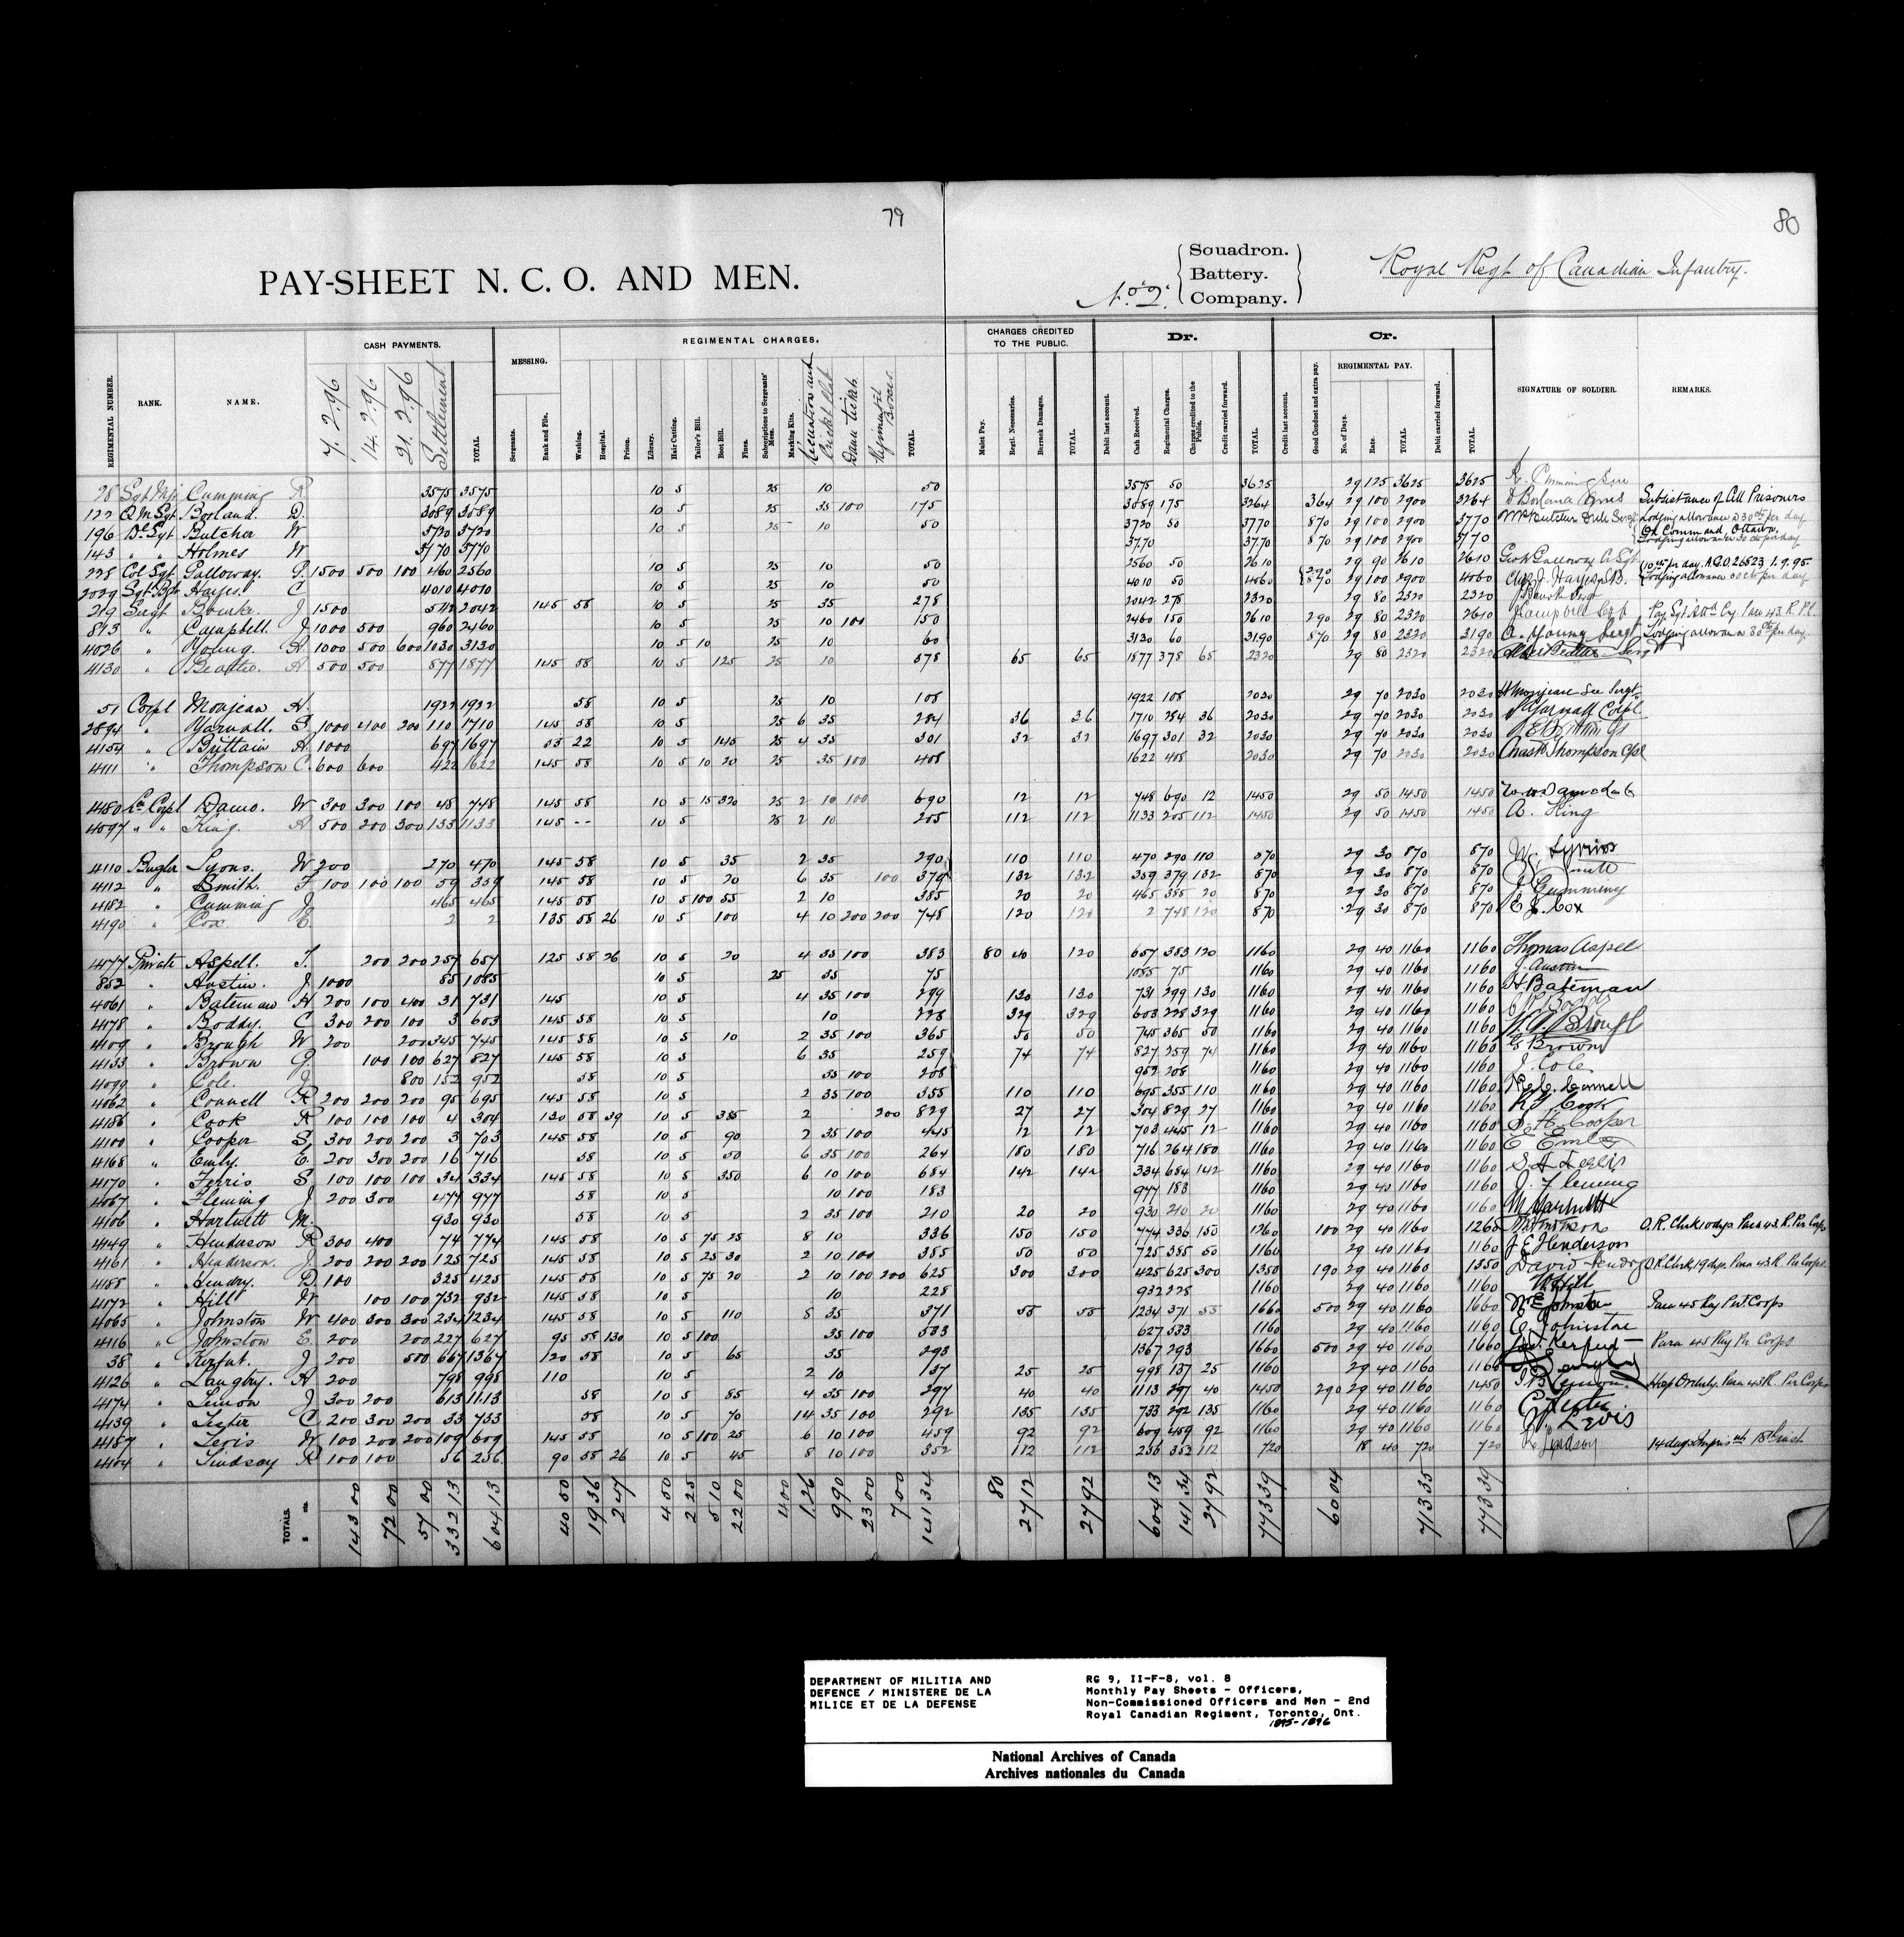 79
80
PAY-SHEET N. C. O. AND MEN.
No. 2. Squadron. Battery. Company. Royal Regt of Canadian Infantry.
REGIMENTAL NUMBER. RANK. NAME. CASH PAYMENTS. 7.2.96 14.2.96 21.2.96 Settlement TOTAL. MESSING. Sergeants. Rank and File. REGIMENTAL CHARGES. Washing. Hospital. Prison. Library. Hair Cutting. Tailor's Bill. Boot Bill. Fines. Subscriptions to Sergeants' Mess. Marking Kits. Recreation and Cricket Club TOTAL. CHARGES CREDITED TO THE PUBLIC. Mulct Pay. Regtl. Necessaries. Barrack Damages. TOTAL. Dr. Debit last account. Cash Received. Regimental Charges. Charges credited to the Public. Credit carried forward. TOTAL. Cr. Credit last account. Good Conduct and extra pay. REGIMENTAL PAY. No. of Days. Rate. TOTAL Debit carried forward. TOTAL. SIGNATURE OF SOLDIER. REMARKS.
28 Sgt Mjr Cumming R. 3575 3575 10 5 25 10 50 3575 50 3625 29 125 3625 3625
122 Q.M. Sgt Borland. D. 3089 3089 10 5 25 35 100 175 3089 175 3264 364 29 100 2900 3264 Subsistance of All Prisoners
196 Butcher W 3720 3720 10 5 25 10 50 3720 50 3770 870 29 100 2900 3770 Lodging allowance @ 30cts per day
143 " " Holmes W 3770 3770 3770 3770 870 29 100 2900 3770 On Command, Ottawa. Lodging allowance 30 cts per day
228 Col Sgt. Galloway. G. 1500 500 100 460 2560 10 5 25 10 50 2560 50 2610 29 90 2610 2610
2029 Hayes. C 4010 4010 10 5 25 10 50 4010 50 4060 290 870 29 100 2900 4060 10cts per day. A.G.O 26523 1.9.95. Lodging allowance 30 cts per day
219 Sergt Bourke. J 1500 542 2042 145 58 10 5 25 35 278 2042 278 2320 29 80 2320 2320
813 " Campbell. J 1000 500 960 2460 10 5 25 10 100 150 2460 150 2610 290 29 80 2320 2610
4026 " Young. A. 1000 500 600 1030 3130 10 5 10 25 10 60 3130 60 3190 870 29 80 2320 3190 A. Young Sergt Lodging allowance 30cts per day.
4130 " Beattie. A 500 500 877 1877 145 58 10 5 125 25 10 378 65 65 1877 378 65 2320 29 80 2320 2320
51 Corpl Monjean H. 1922 1922 58 10 5 25 10 108 1922 108 2030 29 70 2030 2030
2894 " Yarnall. S. 1000 400 200 110 1710 145 58 10 5 25 6 35 284 36 36 1710 284 36 2030 29 70 2030 2030 Yarnall Corpl
4154 " Brittain A. 1000 697 1697 55 22 10 5 145 25 4 35 301 32 32 1697 301 32 2030 29 70 2030 2030
4111 " Thompson C. 600 600 422 1622 145 58 10 5 10 20 25 35 100 408 1622 408 2030 29 70 2030 2030 Thompson Cpl
4480 Lce Corpl Damo. W 300 300 100 48 748 145 58 10 5 15 320 25 2 10 100 690 12 12 748 690 12 1450 29 50 1450 1450
4097 " " King. A 500 200 300 133 1133 145 -- 10 5 25 2 10 205 112 112 1133 205 112 1450 29 50 1450 1450 A. King
4110 Bugler Lyons. W 200 270 470 145 58 10 5 35 2 35 290 110 110 470 290 110 870 29 30 870 870 W. Lyons
4112 " Smith. F 100 100 100 59 359 145 58 10 5 20 6 35 100 379 132 132 359 379 132 870 29 30 870 870 Smith
4182 " Cumming J. 465 465 145 58 10 5 100 55 2 10 385 20 20 465 385 20 870 29 30 870 870 J. Cumming
4190 " Cox. E. 2 2 135 58 26 10 5 100 4 10 200 200 748 120 120 2 748 120 870 29 30 870 870 E J. Cox
4177 Private Aspell. T. 200 200 257 657 125 58 26 10 5 20 4 35 100 383 80 40 120 657 383 120 1160 29 40 1160 1160 Thomas Aspel
852 " Austin. J. 1000 85 1085 10 5 25 35 75 1085 75 1160 29 40 1160 1160 J. Austin
4061 " Bateman H 200 100 400 31 731 145 10 5 4 35 100 299 130 130 731 299 130 1160 29 40 1160 1160 H Bateman
4178 " Boddy. C 300 200 100 3 603 145 58 10 5 10 228 329 329 603 228 329 1160 29 40 1160 1160
4109 " Brough W 200 200 345 745 145 58 10 5 10 2 35 100 365 50 50 745 365 50 1160 29 40 1160 1160 Brough
4133 " Brown G. 100 100 627 827 145 58 10 5 6 35 259 74 74 827 259 74 1160 29 40 1160 1160 G Brown
4099 " Cole. J. 800 152 952 58 10 5 35 100 208 952 208 1160 29 40 1160 1160 J. Cole
4062 " Connell R 200 200 200 95 695 145 58 10 5 2 35 100 355 110 110 695 355 110 1160 29 40 1160 1160
4186 " Cook R 100 100 100 4 304 130 58 39 10 5 385 2 200 829 27 27 304 829 27 1160 29 40 1160 1160 Cook
4100 " Cooper S. 300 200 200 3 703 145 58 10 5 90 2 35 100 445 12 12 703 445 12 1160 29 40 1160 1160 Cooper
4168 " Emly. E. 200 300 200 16 716 58 10 5 50 6 35 100 264 180 180 716 264 180 1160 29 40 1160 1160
4170 " Ferris S. 100 100 100 34 334 145 58 10 5 350 6 10 100 684 142 142 334 684 142 1160 29 40 1160 1160
4067 " Fleming J. 200 300 477 977 58 10 5 10 100 183 977 183 1160 29 40 1160 1160 J. Fleming
4106 " Hartnett M. 930 930 58 10 5 2 35 100 210 20 20 930 210 20 1160 29 40 1160 1160 M. Hartnett
4149 " Henderson R 300 400 74 774 145 58 10 5 75 25 8 10 336 150 150 774 336 150 1260 100 29 40 1160 1260 O.R. Clerk 10 days. Para 43. R. Per Corps
4161 " Henderson. J. 200 200 200 125 725 145 58 10 5 25 30 2 10 100 385 50 50 725 385 50 1160 29 40 1160 1160 J E Henderson
4188 " Hendry. D. 100 325 425 145 58 10 5 75 20 2 10 100 200 625 300 300 425 625 300 1350 190 29 40 1160 1350 David Hendry O.R. Clerk 19 dys. Para 43 R. Per Corps.
4172 " Hill W 100 100 732 932 145 58 10 5 10 228 932 228 1160 29 40 1160 1160 W. Hill
4065 " Johnston W 400 300 300 234 1234 145 58 10 5 110 8 35 371 55 55 1234 371 55 1660 500 29 40 1160 1660 Para 45 Reg Per Corps
4116 " Johnston E. 200 200 227 627 95 58 130 10 5 100 35 100 533 627 533 1160 29 40 1160 1160
38 " Kerfut. J 200 500 667 1367 120 58 10 5 65 35 293 1367 293 1660 500 29 40 1160 1660 Para 45 Reg Per Corps
4126 " Langby. H 200 798 998 110 10 5 2 10 137 25 25 998 137 25 1160 29 40 1160 1160
4174 " Lemon J 300 200 613 1113 58 10 5 85 4 35 100 297 40 40 1113 297 40 1450 290 29 40 1160 1450 Hosp Orderly. Para 43 R. Per Corps
4139 " Lester C. 200 300 200 33 733 58 10 5 70 14 35 100 292 135 135 733 292 135 1160 29 40 1160 1160
4187 " Levis W 100 200 200 109 609 145 58 10 5 100 25 6 10 100 459 92 92 609 459 92 1160 29 40 1160 1160 W. Levis
4104 " Lindsay R 100 100 56 256 90 58 26 10 5 45 8 10 100 352 112 112 256 352 112 720 18 40 720 720 Lindsay
TOTALS. $ cts. 143 00 72 00 57 00 332 13 604 13 40 50 19 36 2 47 4 50 2 25 5 10 22 00 4 00 1.26 9 90 23 00 7 00 141 34 80 27 12 27 92 604 13 141 34 27 92 773 39 60 04 713 35 773 39
DEPARTMENT OF MILITIA AND
DEFENCE / MINISTERE DE LA
MILICE ET DE LA DEFENSE
RG 9, II-F-8, vol. 8
Monthly Pay Sheets - Officers,
Non-Commissioned Officers and Men - 2nd
Royal Canadian Regiment, Toronto, Ont.
1895-1896
National Archives of Canada
Archives nationales du Canada